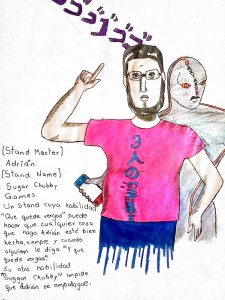 ゴゴゴゴゴゴ
3人の
[Stand Master]
Adrián.
[Stand Name]
Sugar Chubby
Games.
Un stand cuya habilidad
"Que quede vergas" puede
hacer que cualquier cosa
que haga Adrián esté bien
hecha, siempre y cuando
alguien le diga "Y que
quede vergas"
Su otra habilidad
"Suggar Chubby" impide
que Adrián se empalague.